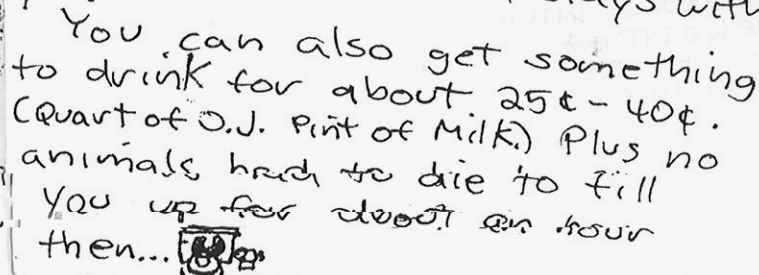 with
You can also get something
to drink for about 25¢ - 40¢.
(Quart of O.J. Pint of Milk.) Plus no
animals had to die to fill
you up for about an hour
then...